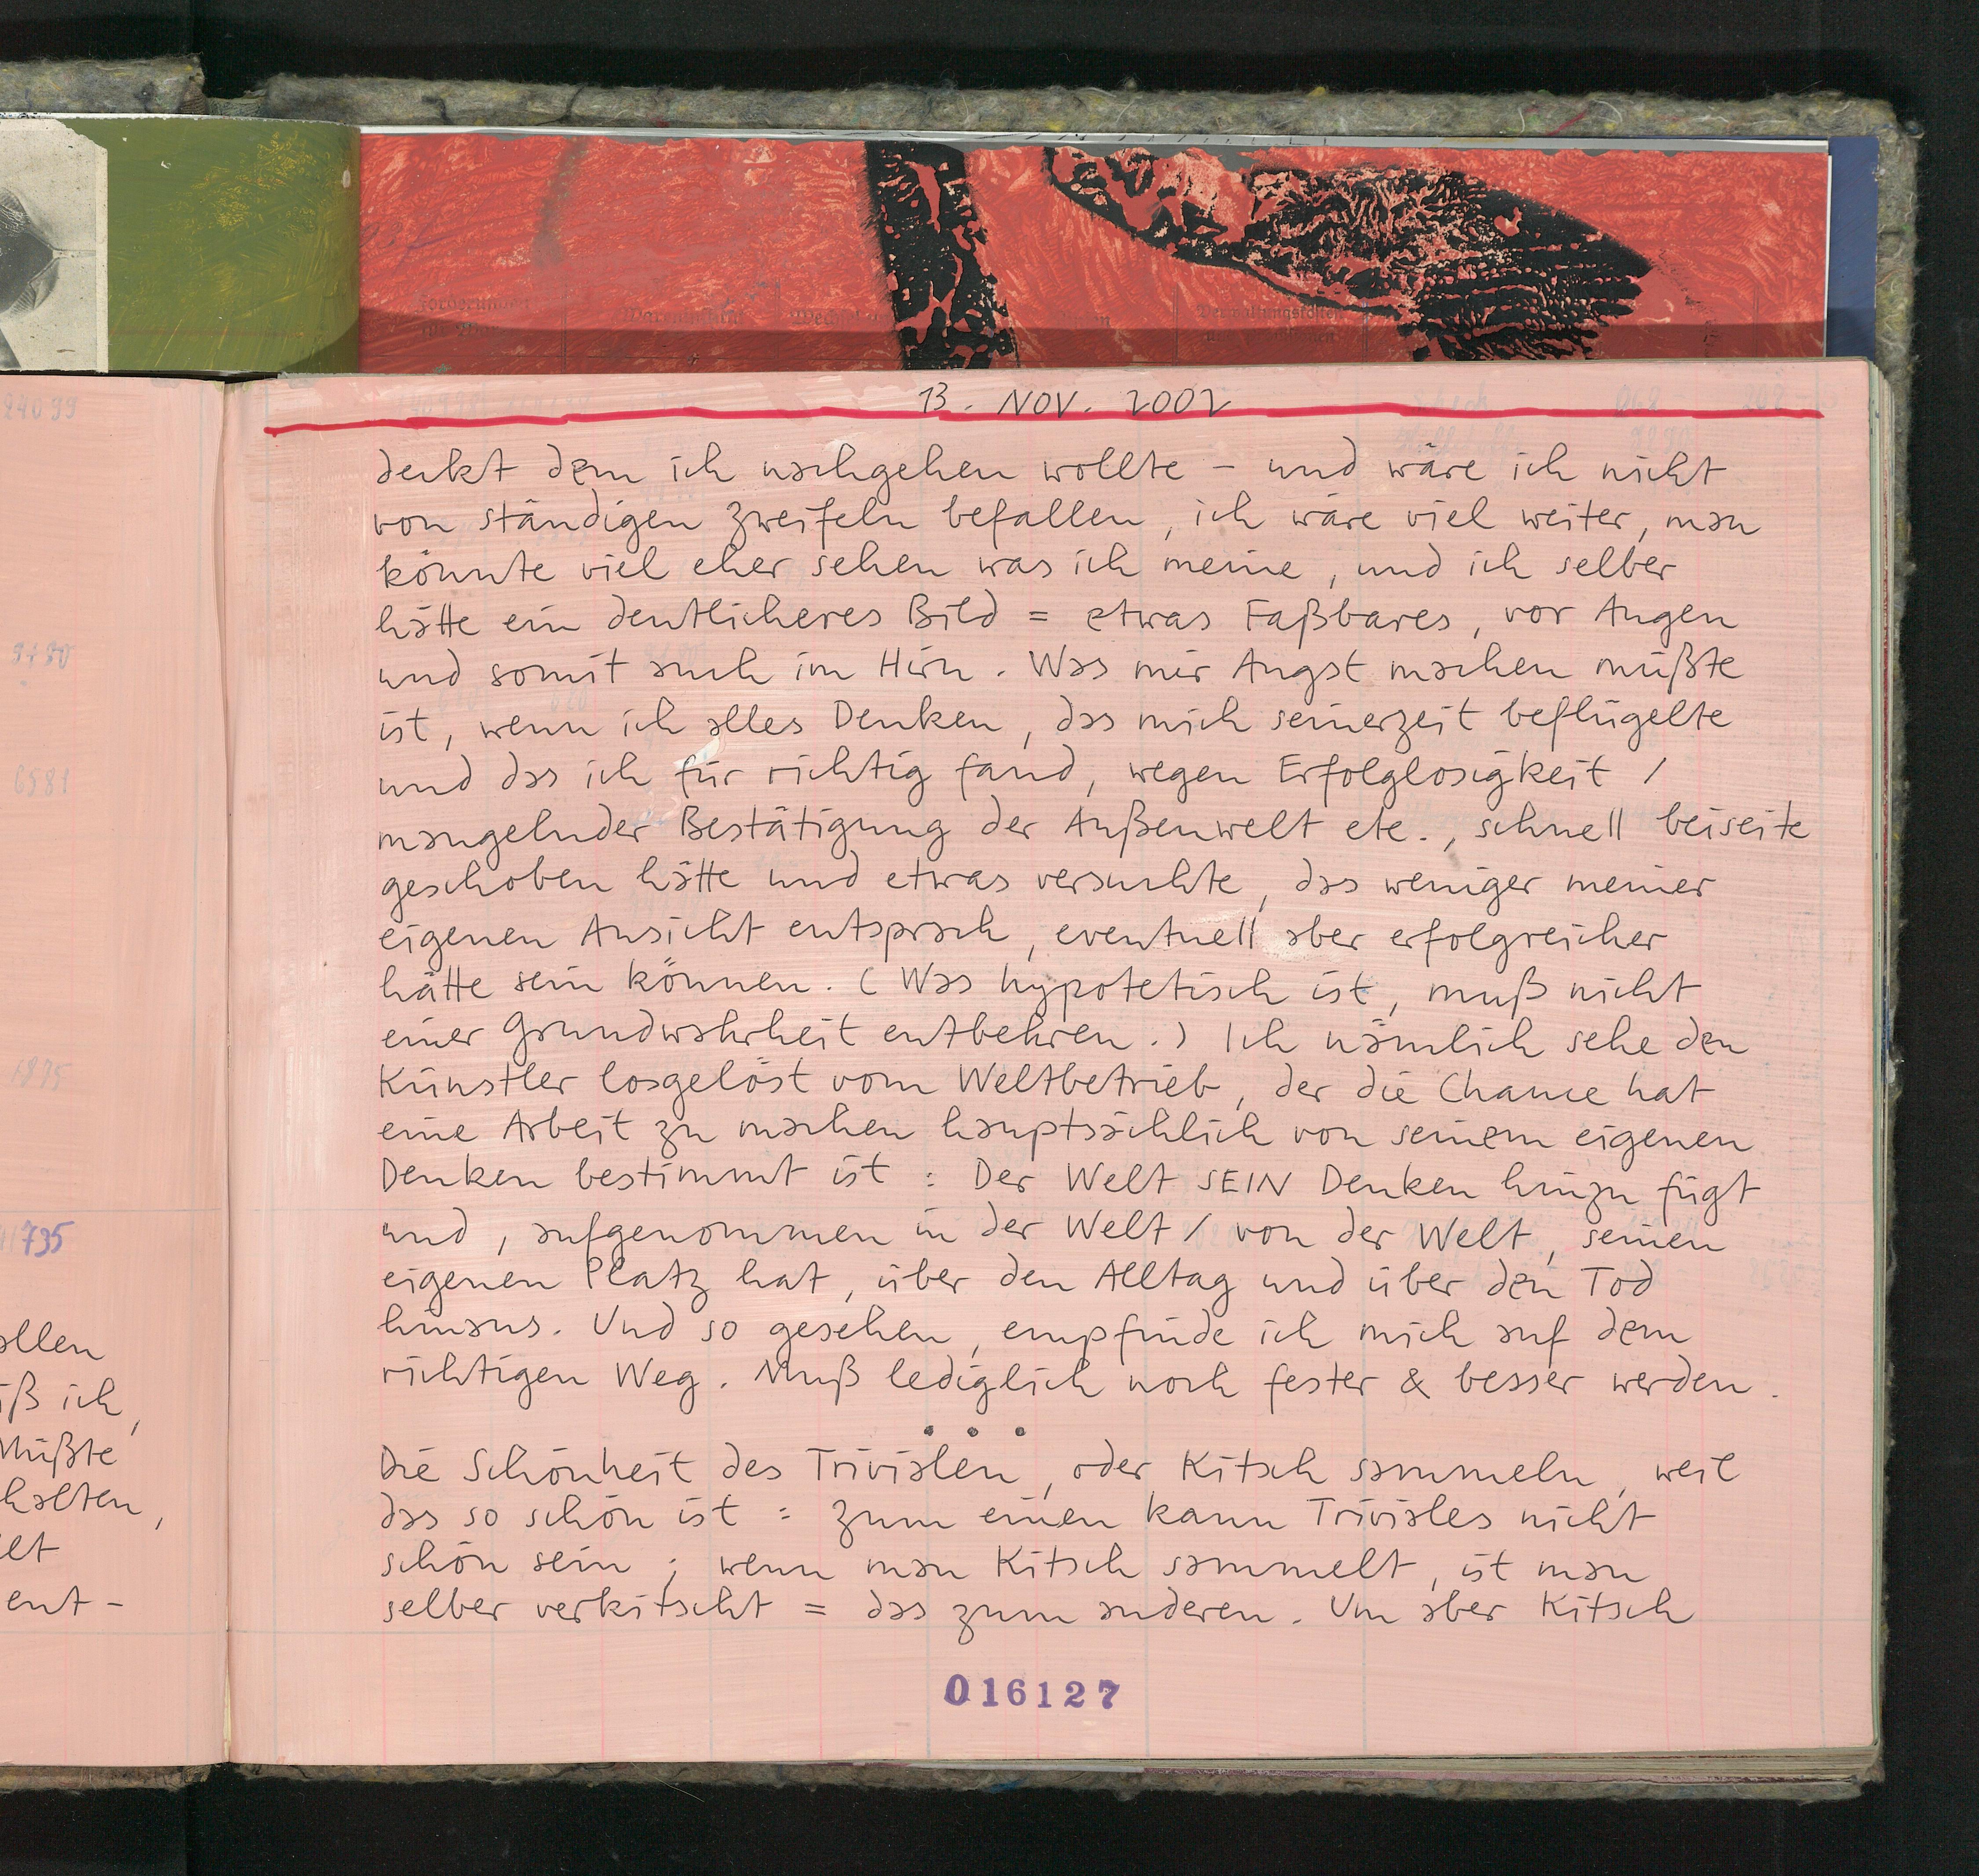 24099
9490
6581
1895
735
allen
iß ich,
Müßte
halten,
elt
ent-
Forderungen
Warenkonto
Verwaltungskosten
13. NOV. 2002
deckt dem ich nachgehen wollte – und wäre ich nicht
von ständigen Zweifeln befallen, ich wäre viel weiter, man
könnte viel eher sehen was ich meine, und ich selber
hätte ein deutlicheres Bild = etwas Faßbares, vor Augen
und somit auch im Hirn. Was mir Angst machen müßte
ist, wenn ich alles Denken, das mich seinerzeit beflügelte
und das ich für richtig fand, wegen Erfolglosigkeit /
mangelnder Bestätigung der Außenwelt etc., schnell beiseite
geschoben hätte und etwas versuchte, das weniger meiner
eigenen Ansicht entsprach, eventuell aber erfolgreicher
hätte sein können. (Was hypotetisch ist, muß nicht
einer Grundwahrheit entbehren.) Ich nämlich sehe den
Künstler losgelöst vom Weltbetrieb, der die Chance hat
eine Arbeit zu machen hauptsächlich von seinem eigenen
Denken bestimmt ist : Der Welt SEIN Denken hinzu fügt
und, aufgenommen in der Welt / von der Welt, seinen
eigenen Platz hat, über den Alltag und über den Tod
hinaus. Und so gesehen, empfinde ich mich auf dem
richtigen Weg. Muß lediglich noch fester & besser werden.
• • •
Die Schönheit des Trivialen, oder Kitsch sammeln, weil
das so schön ist : zum einen kann Triviales nicht
schön sein ; wenn man Kitsch sammelt, ist man
selber verkitscht = das zum anderen. Um aber Kitsch
016127